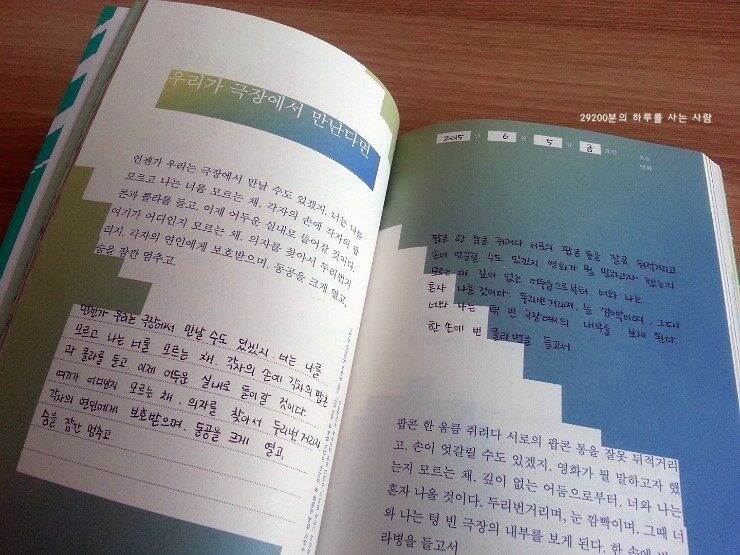 우리가 극장에서 만난다면
언젠가 우리는 극장에서 만날 수도 있겠지. 너는 나를
모르고 나는 너를 모르는 채. 각자의 손에 각자의 팝
콘과 콜라를 들고. 이제 어두운 실내로 들어갈 것이다.
여기가 어디인지 모르는 채. 의자를 찾아서 두리번거
리지. 각자의 연인에게 보호받으며. 동공을 크게 열고.
숨을 잠깐 멈추고.
언젠가 우리는 극장에서 만날 수도 있겠지. 너는 나를
모르고 나는 너를 모르는 채. 각자의 손에 각자의 팝콘
과 콜라를 들고. 이제 어두운 실내로 들어갈 것이다.
여기가 어디인지 모르는 채. 의자를 찾아서 두리번거리지
각자의 연인에게 보호받으며. 동공을 크게 열고
숨을 잠깐 멈추고
29200분의 하루를 사는 사람
2015 년 6 월 5 일 금 요일
오늘
팝콘 한 움큼 쥐려다 서로의 팝콘 통을 잘못 뒤적거리고
손이 엇갈릴 수도 있겠지. 영화가 뭘 말하고자 했는지
모르는 채. 깊이 없는 어둠으로부터. 너와 나는
혼자 나올 것이다. 두리번거리며, 눈 깜빡이며. 그때
너와 나는 텅 빈 극장의 내부를 보게 된다.
한 손에 빈 콜라병을 들고서
팝콘 한 움큼 쥐려다 서로의 팝콘 통을 잘못 뒤적거리
고. 손이 엇갈릴 수도 있겠지. 영화가 뭘 말하고자 했
는지 모르는 채. 깊이 없는 어둠으로부터. 너와 나는
혼자 나올 것이다. 두리번거리며, 눈 깜빡이며. 그때 너
와 나는 텅 빈 극장의 내부를 보게 된다. 한 손에
라병을 들고서